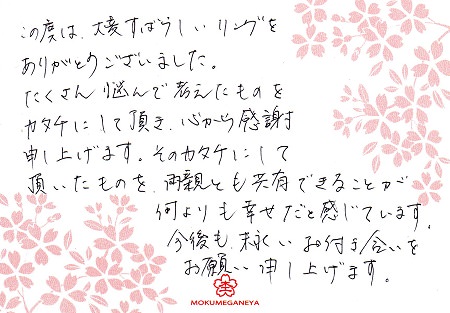 この度は、大変すばらしいリングを
ありがとうございました。
たくさん悩んで考えたものを
カタチにして頂き、心から感謝
申し上げます。そのカタチにして
頂いたものを、両親とも共有できることが
何よりも幸せだと感じています。
今後も、末永いお付き合いを
お願い申し上げます。
MOKUMEGANEYA